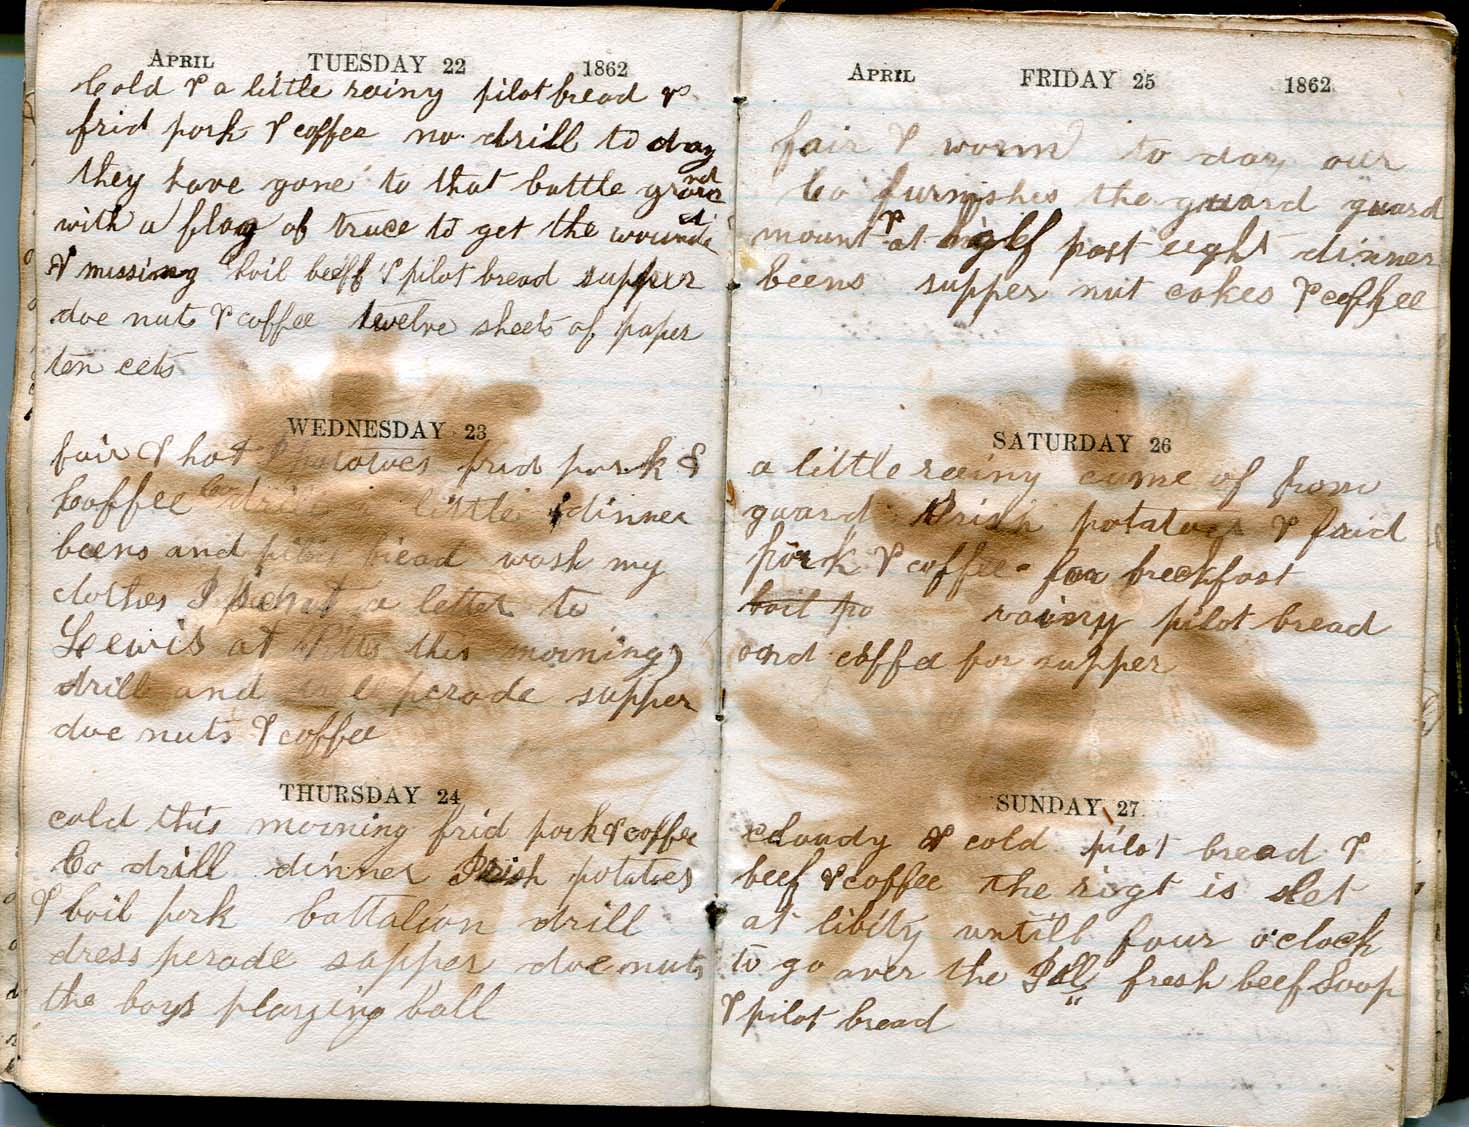 April TUESDAY 22 1862
Cold & a little rainy pilot bread &
frid pork & coffee no drill to day
they have gone to that battle ground
with a flag of truce to get the wounded
& missing boil beeff & pilot bread supper
doe nuts & coffee twelve sheets of paper
ten cets
WEDNESDAY 23
fair & hot potatoes frid pork &
Coffee Co drill a little dinner
beens and pilot bread wash my
clothes I sent a letter to
Lewis at this morning)
drill and parade supper
doe nuts & coffee
THURSDAY 24
cold this morning frid pork & coffee
Co drill dinner Irish potatoes
& boil pork battalion drill
dress perade supper doe nuts
the boys playing ball
April FRIDAY 25 1862
fair & worm to day our
Co furnishes the guard guard
mount at half past eight dinner
beens supper nut cakes & coffee
SATURDAY 26
a little reiny came of from
guard Irish potatoes & fried
pork & coffee for breckfast
boil po rainy pilot bread
and coffee for supper
SUNDAY 27
cloudy & cold pilot bread &
beef & coffee the rigt is let
at libity untill four o'clock
to go over the Ill fresh beef Soop
& pilot bread